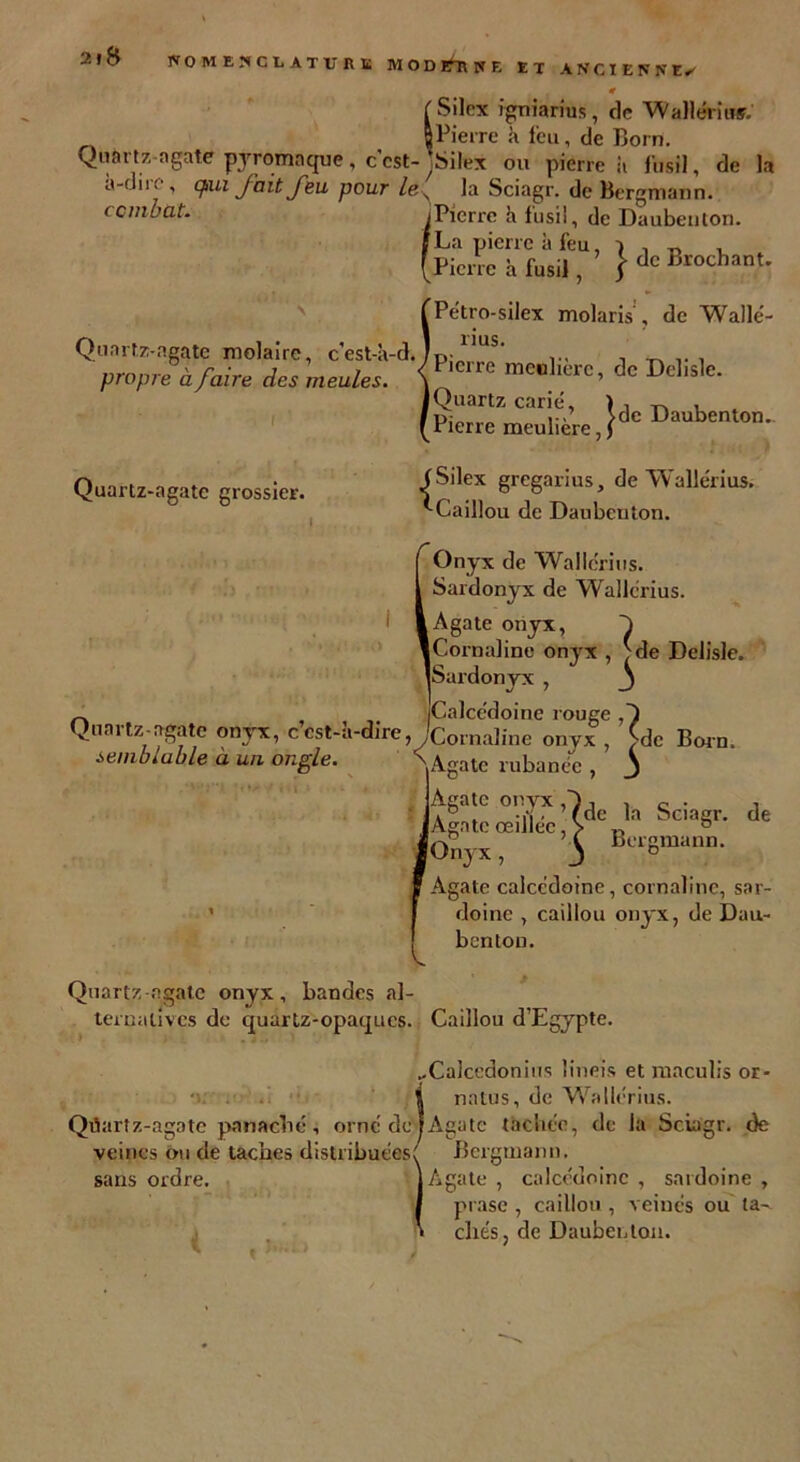 218 NOMENCLATURE MODERNE ET ANCIENNE.
Quartz-agate pyromaque, c'est-
à-dire, qui fait feu pour le
combat.
Silex igniarius, de Wallérius.
Pierre à feu, de Born.
Silex ou pierre à fusil, de la
la Sciagr. de Bergmann.
Pierre à fusil, de Daubenton.
La pierre à feu,
Pierre à fusil,
de Brochant.
Quartz-agate molaire, c'est-à-d.
propre à faire des meules.
Pétro-silex molaris, de Wallé-
rius.
Pierre meulière, de Delisle.
Quartz carié,
Pierre meulière,
de Daubenton.
Quartz-agate grossier.
Silex gregarius, de Wallérius.
Caillou de Daubenton.
Quartz-agate onyx, c'est-à-dire,
semblable à un ongle.
Onyx de Wallérius.
Sardonyx de Wallérius.
Agate onyx,
Cornaline onyx ,
Sardonyx ,
de Delisle.
Calcédoine rouge ,
Cornaline onyx ,
Agate rubanée ,
de Born.
Agate onyx ,
Agate œillée,
Onyx ,
de la Sciagr. de
Bergmann.
Agate calcédoine, cornaline, sar-
doine , caillou onyx, de Dau-
benton.
Quartz-agate onyx, bandes al-
ternatives de quartz-opaques.
Caillou d'Egypte.
Quartz-agate panaché, orné de
veines ou de taches distribuées
sans ordre.
Calcedonius lineis et maculis or-
natus, de Wallérius.
Agate tachée, de la Sciagr. de
Bergmann.
Agate , calcédoine , sardoine ,
prase , caillou , veinés ou ta-
chés, de Daubenton.